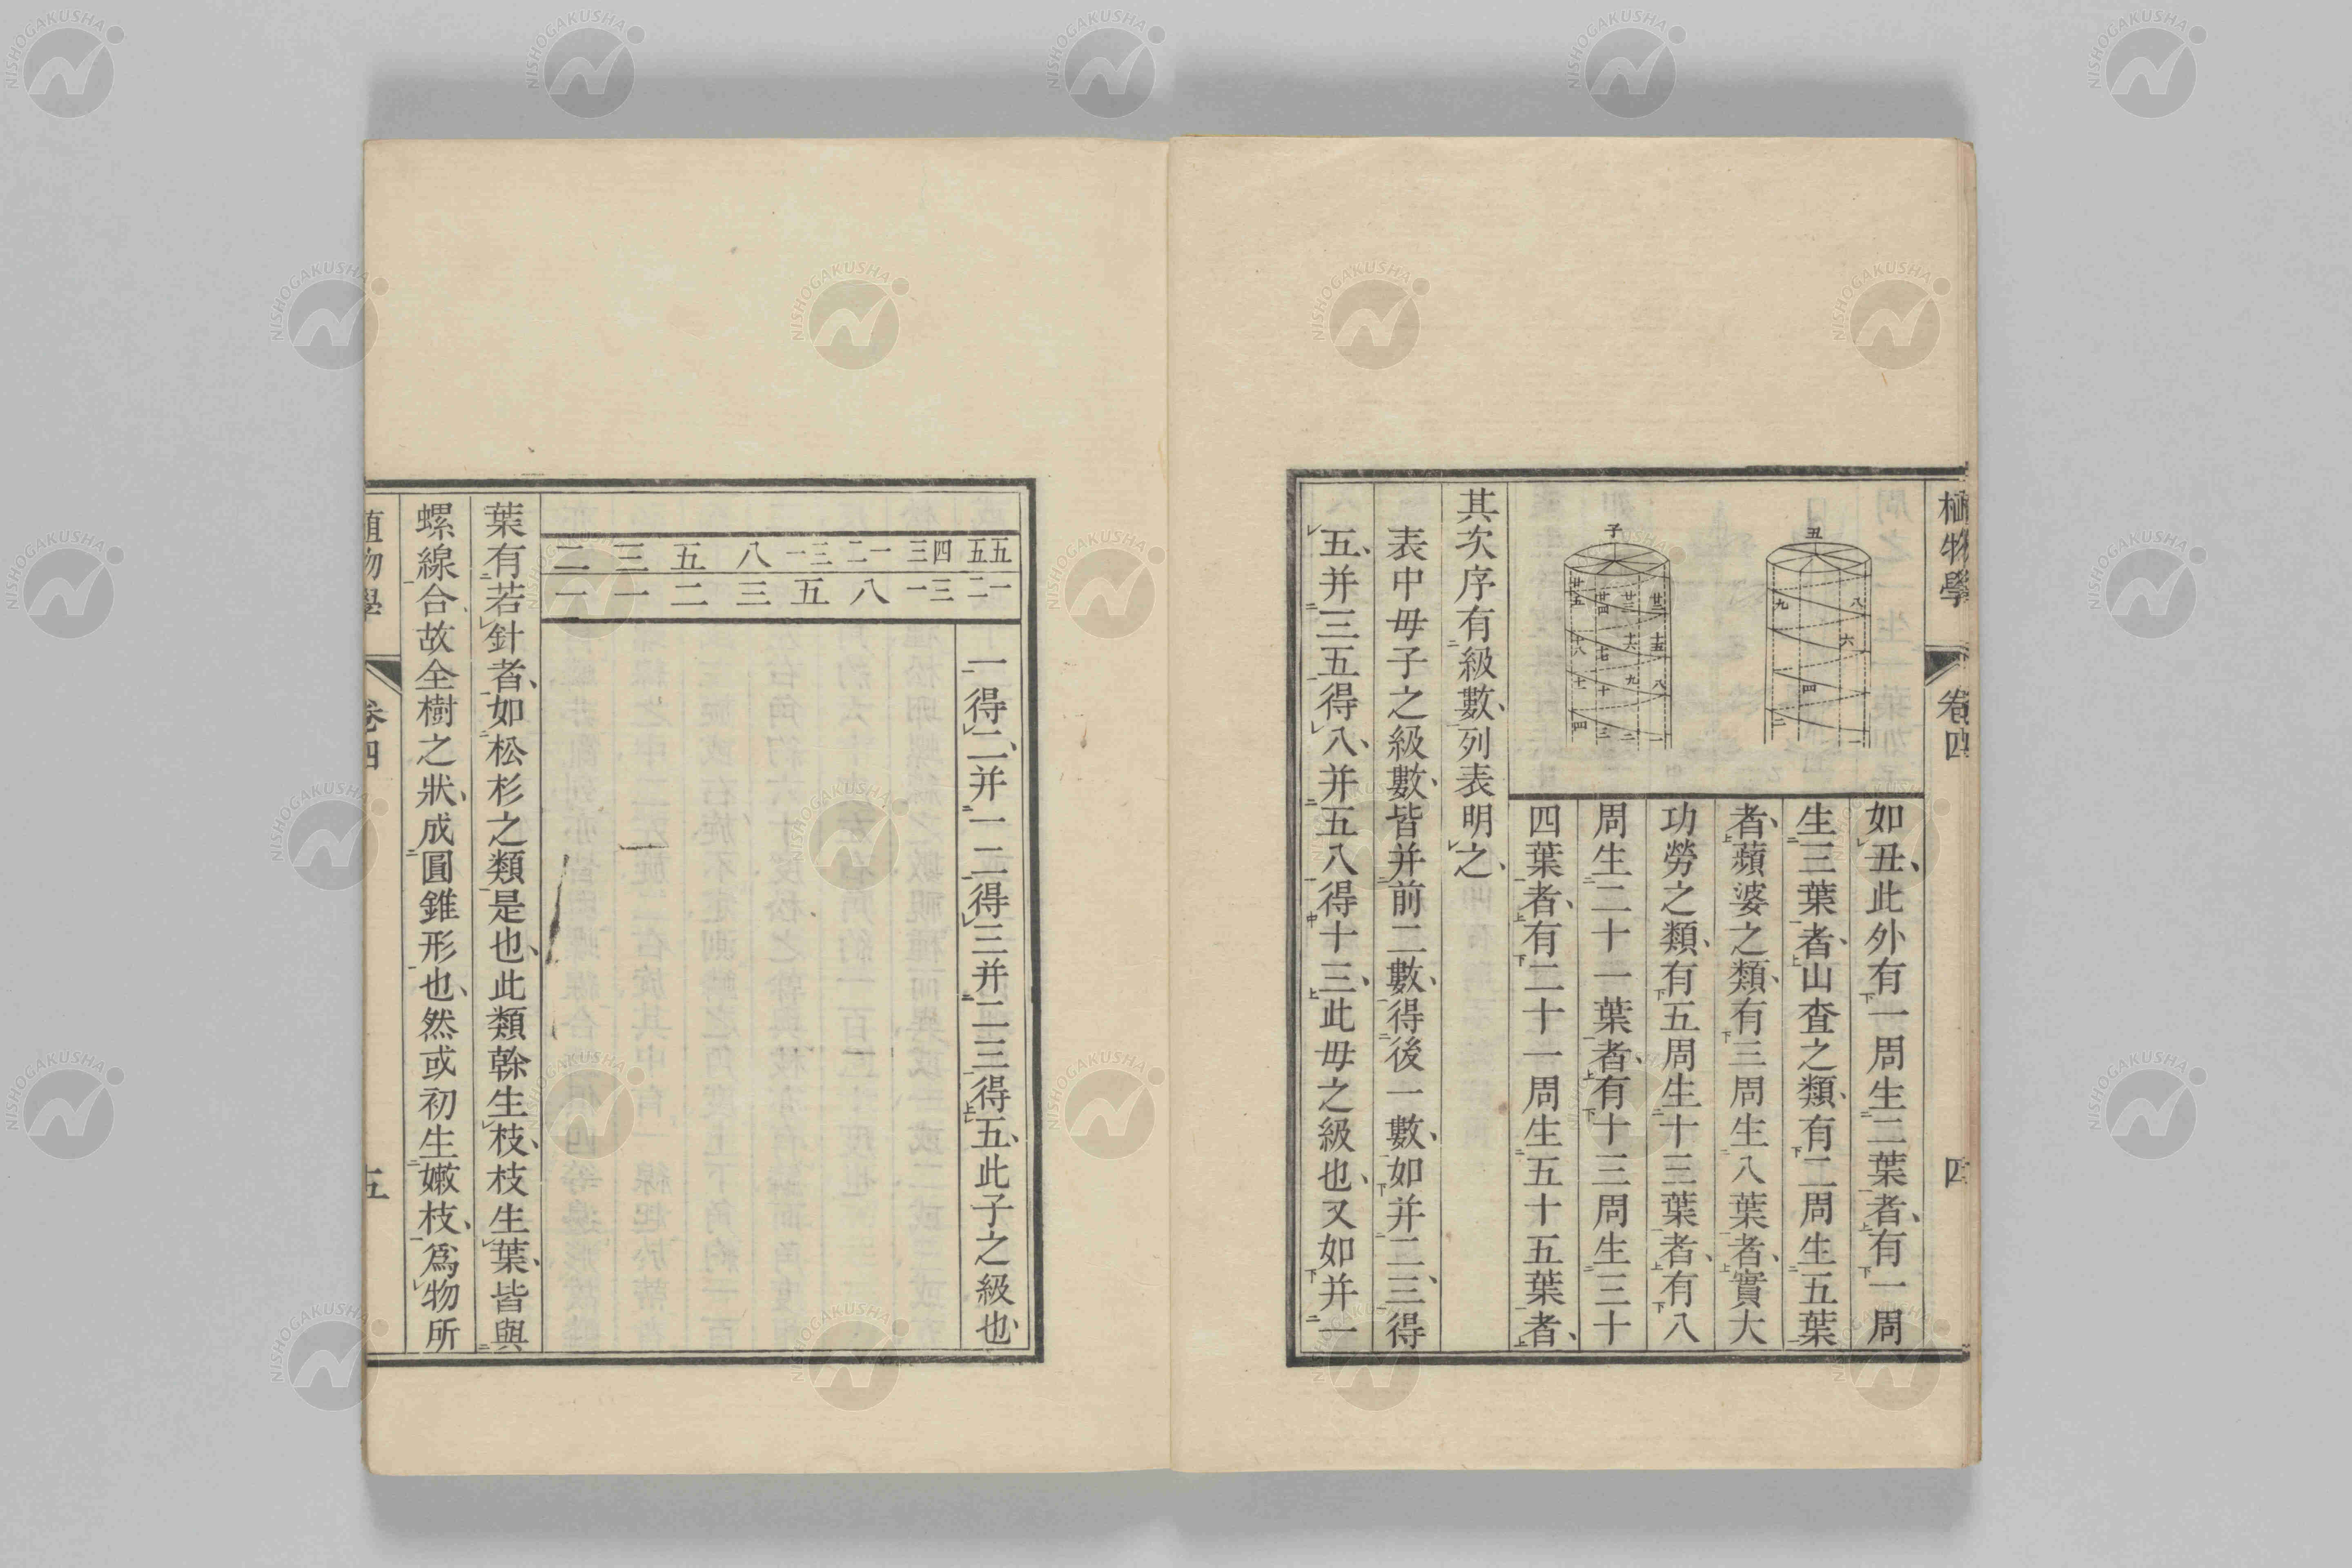 植物學 卷四 四
丑
八
九
六
四
二
一
子
廿二
廿三
廿四
廿五
十五
十六
十七
十八
八
九
十
十一
一
二
三
四
如丑、此外有一周生二葉者、有一周
生三葉者、山査之類、有二周生五葉
者、蘋婆之類、有三周生八葉者、實大
功勞之類、有五周生十三葉者、有八
周生二十一葉者、有十三周生三十
四葉者、有二十一周生五十五葉者、
其次序有級數、列表明之、
表中母子之級數、皆并前二數、得後一數、如并二三、得
五、并三五得八、并五八得十三、此母之級也、又如并一
一得二、并一二得三并二三得五、此子之級也、
五五 三四 二一 一三 八 五 三 二
二一 一三 八 五 三 二 一 一
葉有若針者、如松杉之類是也、此類榦生枝、枝生葉、皆與
螺線合故全樹之狀、成圓錐形也、然或初生嫩枝、爲物所
植物學 卷四 五
NISHOGAKUSHA